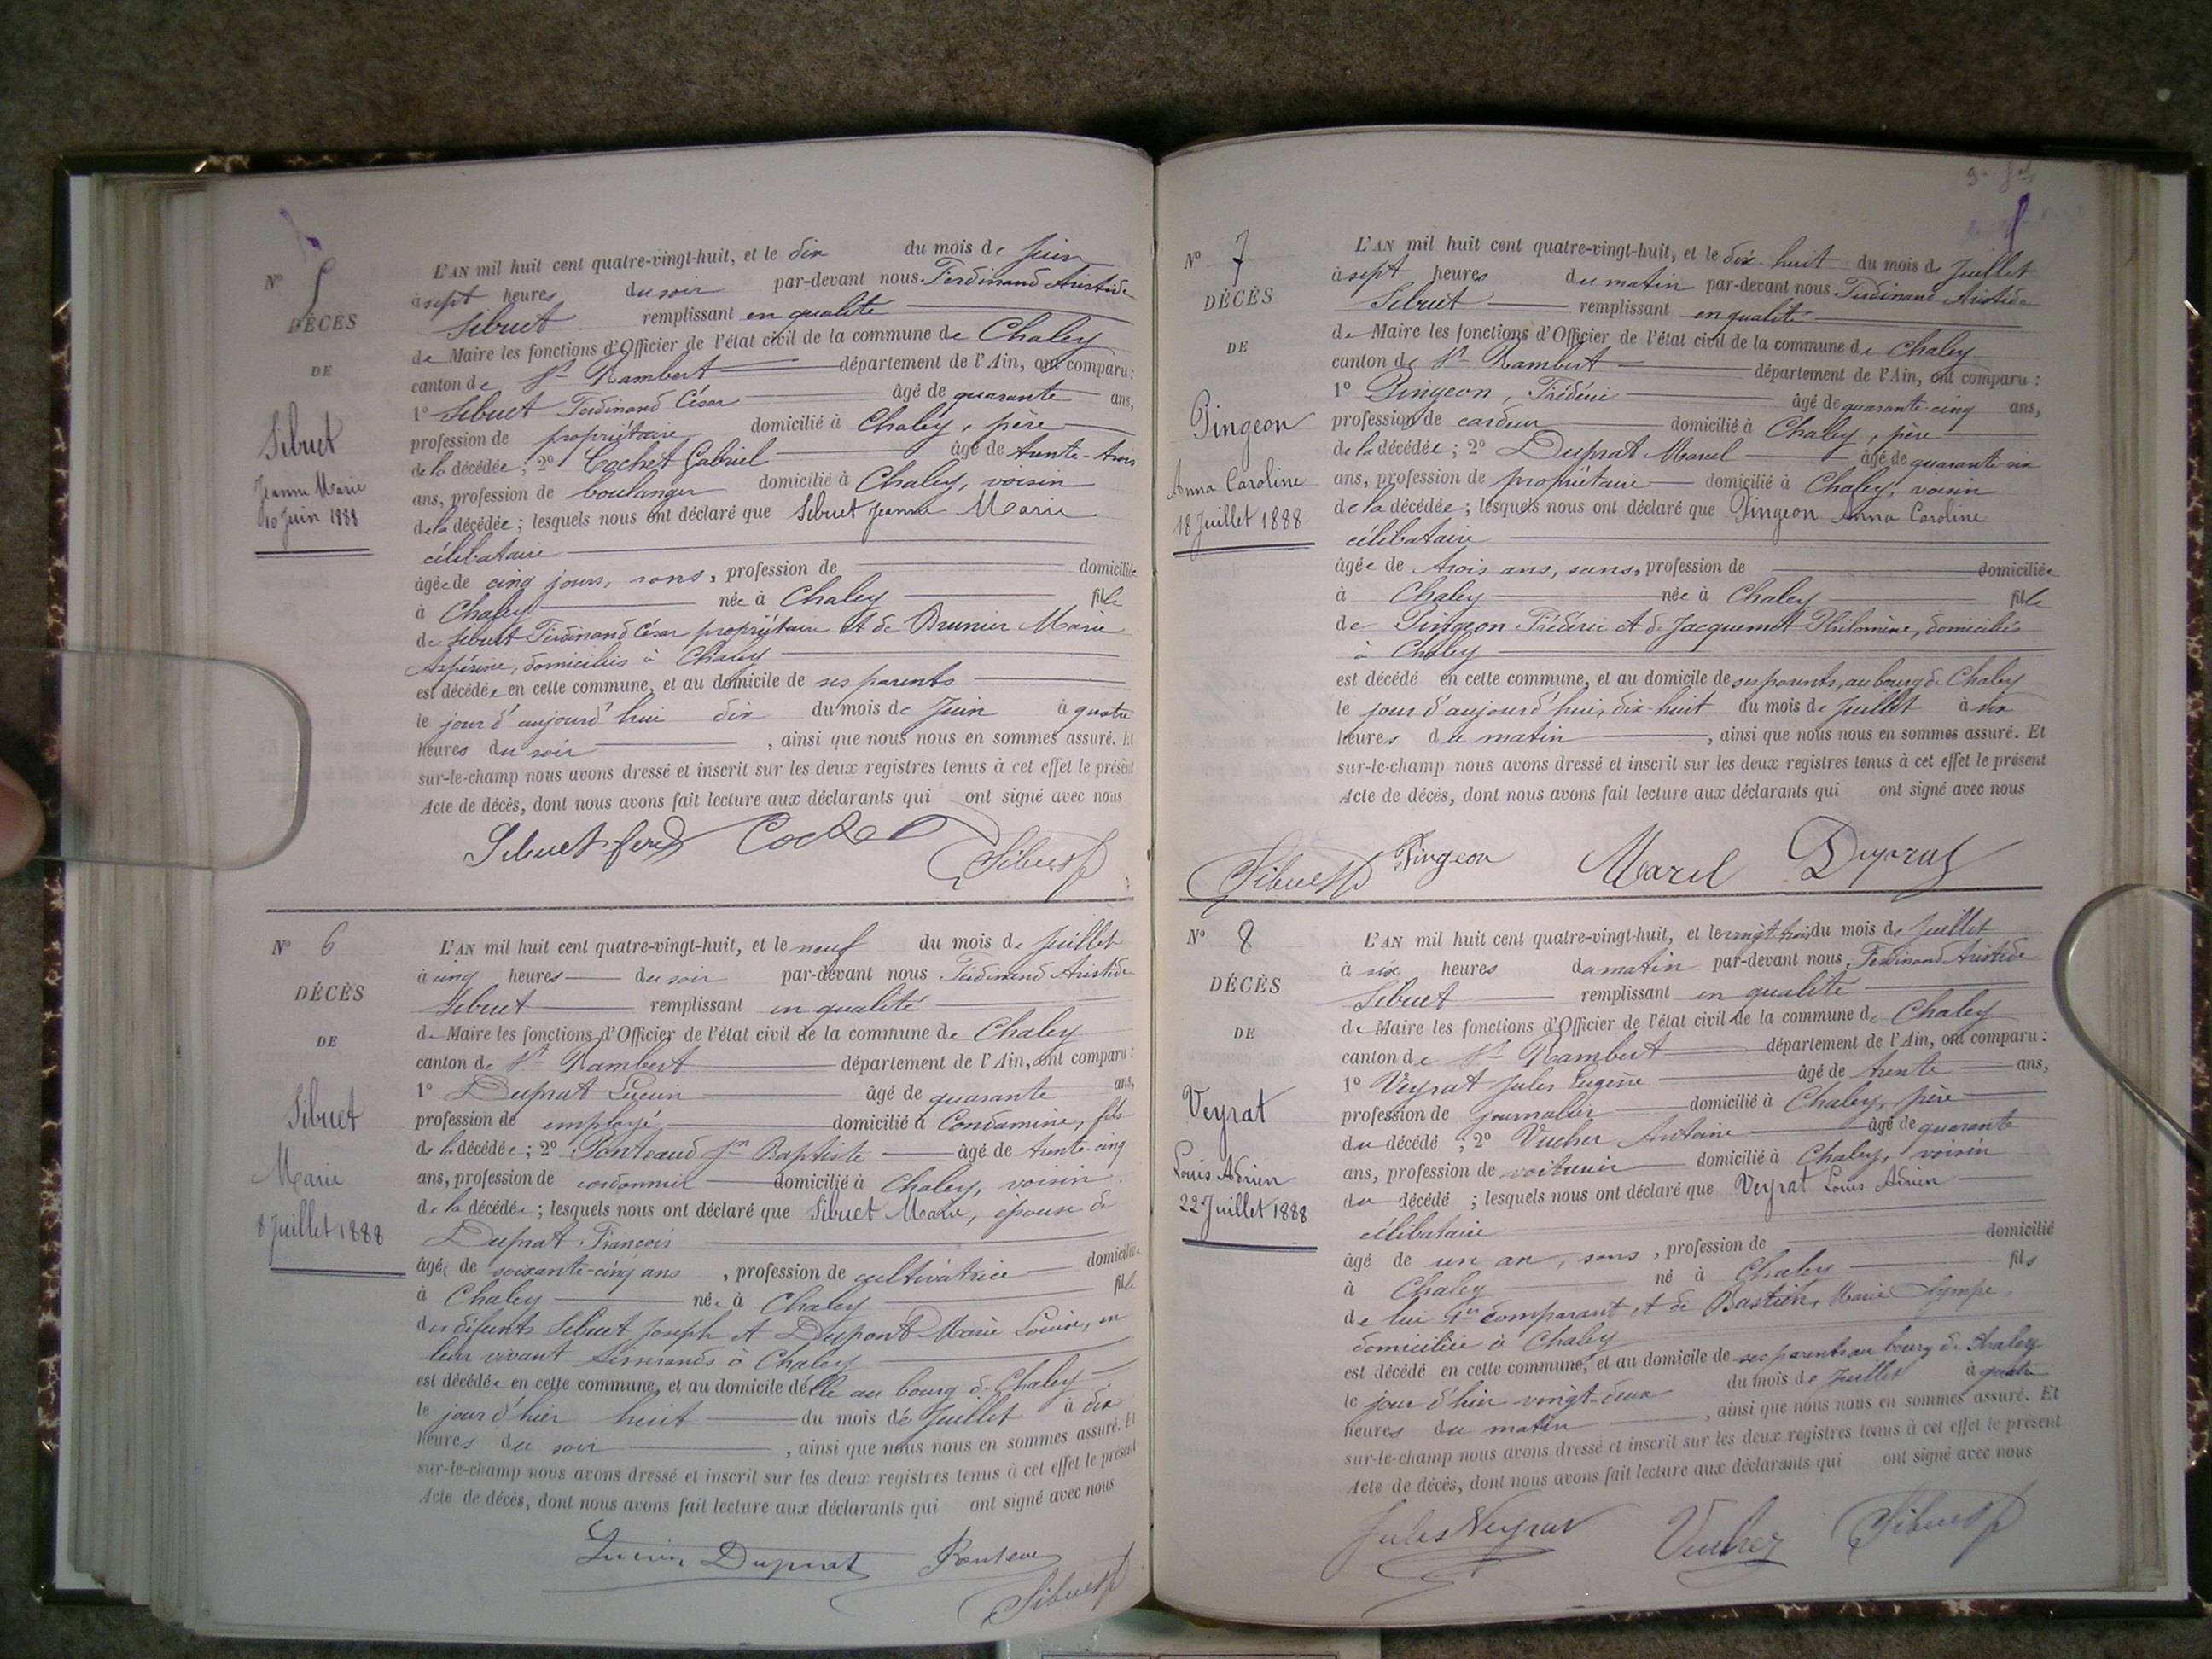 Nº 5
DÉCÈS
DE
Sibuet
Jeanne Marie
10 Juin 1888
L'AN mil huit cent quatre-vingt-huit, et le dix du mois de Juin
à sept heures du soir par-devant nous Ferdinand Aristide
Sibuet remplissant en qualité
de Maire les fonctions d'Officier de l'état civil de la commune de Chaley
canton de St Rambert département de l'Ain, ont comparu :
1º Sibuet Ferdinand César âgé de quarante ans,
profession de propriétaire domicilié à Chaley, père
de la décédée ; 2º Cochet Gabriel âgé de trente-trois
ans, profession de boulanger domicilié à Chaley, voisin
de la décédée ; lesquels nous ont déclaré que Sibuet Jeanne Marie
célibataire
âgée de cinq jours, sans, profession de domiciliée
à Chaley née à Chaley fille
de Sibuet Ferdinand César propriétaire et de Brunier Marie
Aspérine, domiciliés à Chaley
est décédée en cette commune, et au domicile de ses parents
le jour d'aujourd'hui dix du mois de Juin à quatre
heures du soir , ainsi que nous nous en sommes assuré. Et
sur-le-champ nous avons dressé et inscrit sur les deux registres tenus à cet effet le présent
Acte de décès, dont nous avons fait lecture aux déclarants qui ont signé avec nous
Sibuet ferd Cochet
Sibuet
Nº 6
DÉCÈS
DE
Sibuet
Marie
8 Juillet 1888
L'AN mil huit cent quatre-vingt-huit, et le neuf du mois de Juillet
à cinq heures du soir par-devant nous Ferdinand Aristide
Sibuet remplissant en qualité
de Maire les fonctions d'Officier de l'état civil de la commune de Chaley
canton de St Rambert département de l'Ain, ont comparu :
1º Duprat Lucien âgé de quarante ans,
profession de employé domicilié à Condamine, fils
de la décédée ; 2º Ponteaud Jn Baptiste âgé de trente-cinq
ans, profession de cordonnier domicilié à Chaley, voisin
de la décédée ; lesquels nous ont déclaré que Sibuet Marie, épouse de
Duprat François
âgée de soixante-cinq ans , profession de cultivatrice domiciliée
à Chaley née à Chaley fille
des défunts Sibuet Joseph et Dupont Marie Louise, en
leur vivant tisserands à Chaley
est décédée en cette commune, et au domicile d'elle au bourg de Chaley
le jour d'hier huit du mois de Juillet à dix
heures du soir , ainsi que nous nous en sommes assuré. Et
sur-le-champ nous avons dressé et inscrit sur les deux registres tenus à cet effet le présent
Acte de décès, dont nous avons fait lecture aux déclarants qui ont signé avec nous
Lucien Duprat
Sibuet
Nº 7
DÉCÈS
DE
Pingeon
Anna Caroline
18 Juillet 1888
L'AN mil huit cent quatre-vingt-huit, et le dix-huit du mois de Juillet
à sept heures du matin par-devant nous Ferdinand Aristide
Sibuet remplissant en qualité
de Maire les fonctions d'Officier de l'état civil de la commune de Chaley
canton de St Rambert département de l'Ain, ont comparu :
1º Pingeon, Frédéric âgé de quarante-cinq ans,
profession de cardeur domicilié à Chaley, père
de la décédée ; 2º Duprat Marcel âgé de quarante-six
ans, profession de propriétaire domicilié à Chaley, voisin
de la décédée ; lesquels nous ont déclaré que Pingeon Anna Caroline
célibataire
âgée de trois ans, sans, profession de domiciliée
à Chaley née à Chaley fille
de Pingeon Frédéric et de Jacquemet Philomène, domiciliés
à Chaley
est décédé en cette commune, et au domicile de ses parents, au bourg de Chaley
le jour d'aujourd'hui, dix-huit du mois de Juillet à six
heures du matin , ainsi que nous nous en sommes assuré. Et
sur-le-champ nous avons dressé et inscrit sur les deux registres tenus à cet effet le présent
Acte de décès, dont nous avons fait lecture aux déclarants qui ont signé avec nous
Sibuet Pingeon Marcel Duprat
Nº 8
DÉCÈS
DE
Veyrat
Louis Adrien
22 Juillet 1888
L'AN mil huit cent quatre-vingt-huit, et le vingt-trois du mois de Juillet
à six heures du matin par-devant nous Ferdinand Aristide
Sibuet remplissant en qualité
de Maire les fonctions d'Officier de l'état civil de la commune de Chaley
canton de St Rambert département de l'Ain, ont comparu :
1º Veyrat Jules Eugène âgé de trente ans,
profession de journalier domicilié à Chaley, père
du décédé ; 2º Vucher Antoine âgé de quarante
ans, profession de voiturier domicilié à Chaley, voisin
du décédé ; lesquels nous ont déclaré que Veyrat Louis Adrien
célibataire
âgé de un an, sans, profession de domicilié
à Chaley né à Chaley fils
de lui 1er comparant et de Bastien, Marie Olympe,
domiciliée à Chaley
est décédé en cette commune, et au domicile de ses parents au bourg de Chaley
le jour d'hier vingt-deux du mois de Juillet à quatre
heures du matin , ainsi que nous nous en sommes assuré. Et
sur-le-champ nous avons dressé et inscrit sur les deux registres tenus à cet effet le présent
Acte de décès, dont nous avons fait lecture aux déclarants qui ont signé avec nous
Jules Veyrat Vucher Sibuet